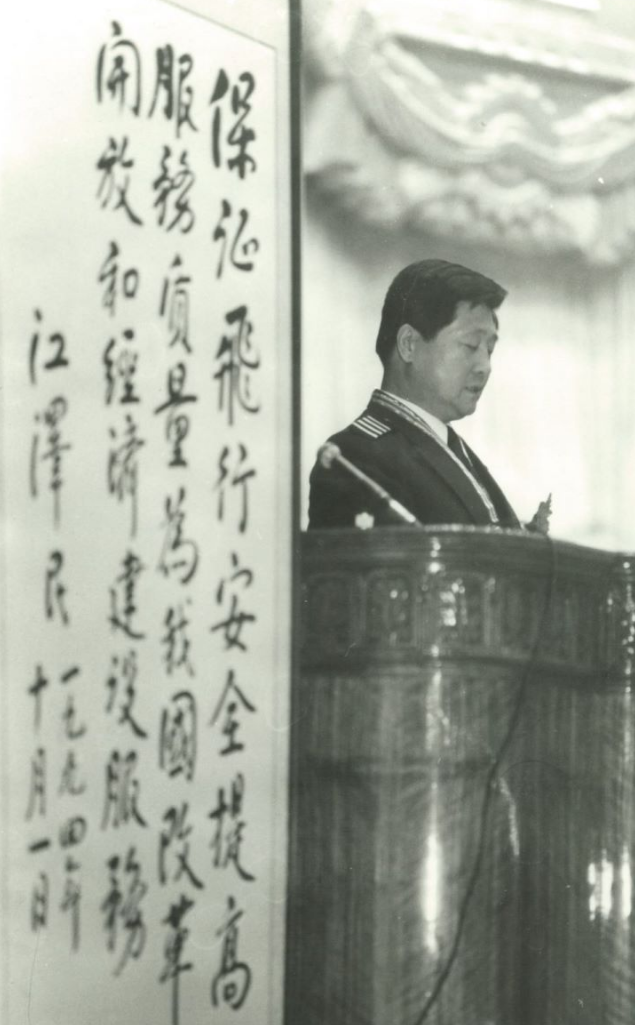 保证飛行安全提高
服務质量為我國改革
開放和經濟建设服務
江澤民
一九九四年
十月一日